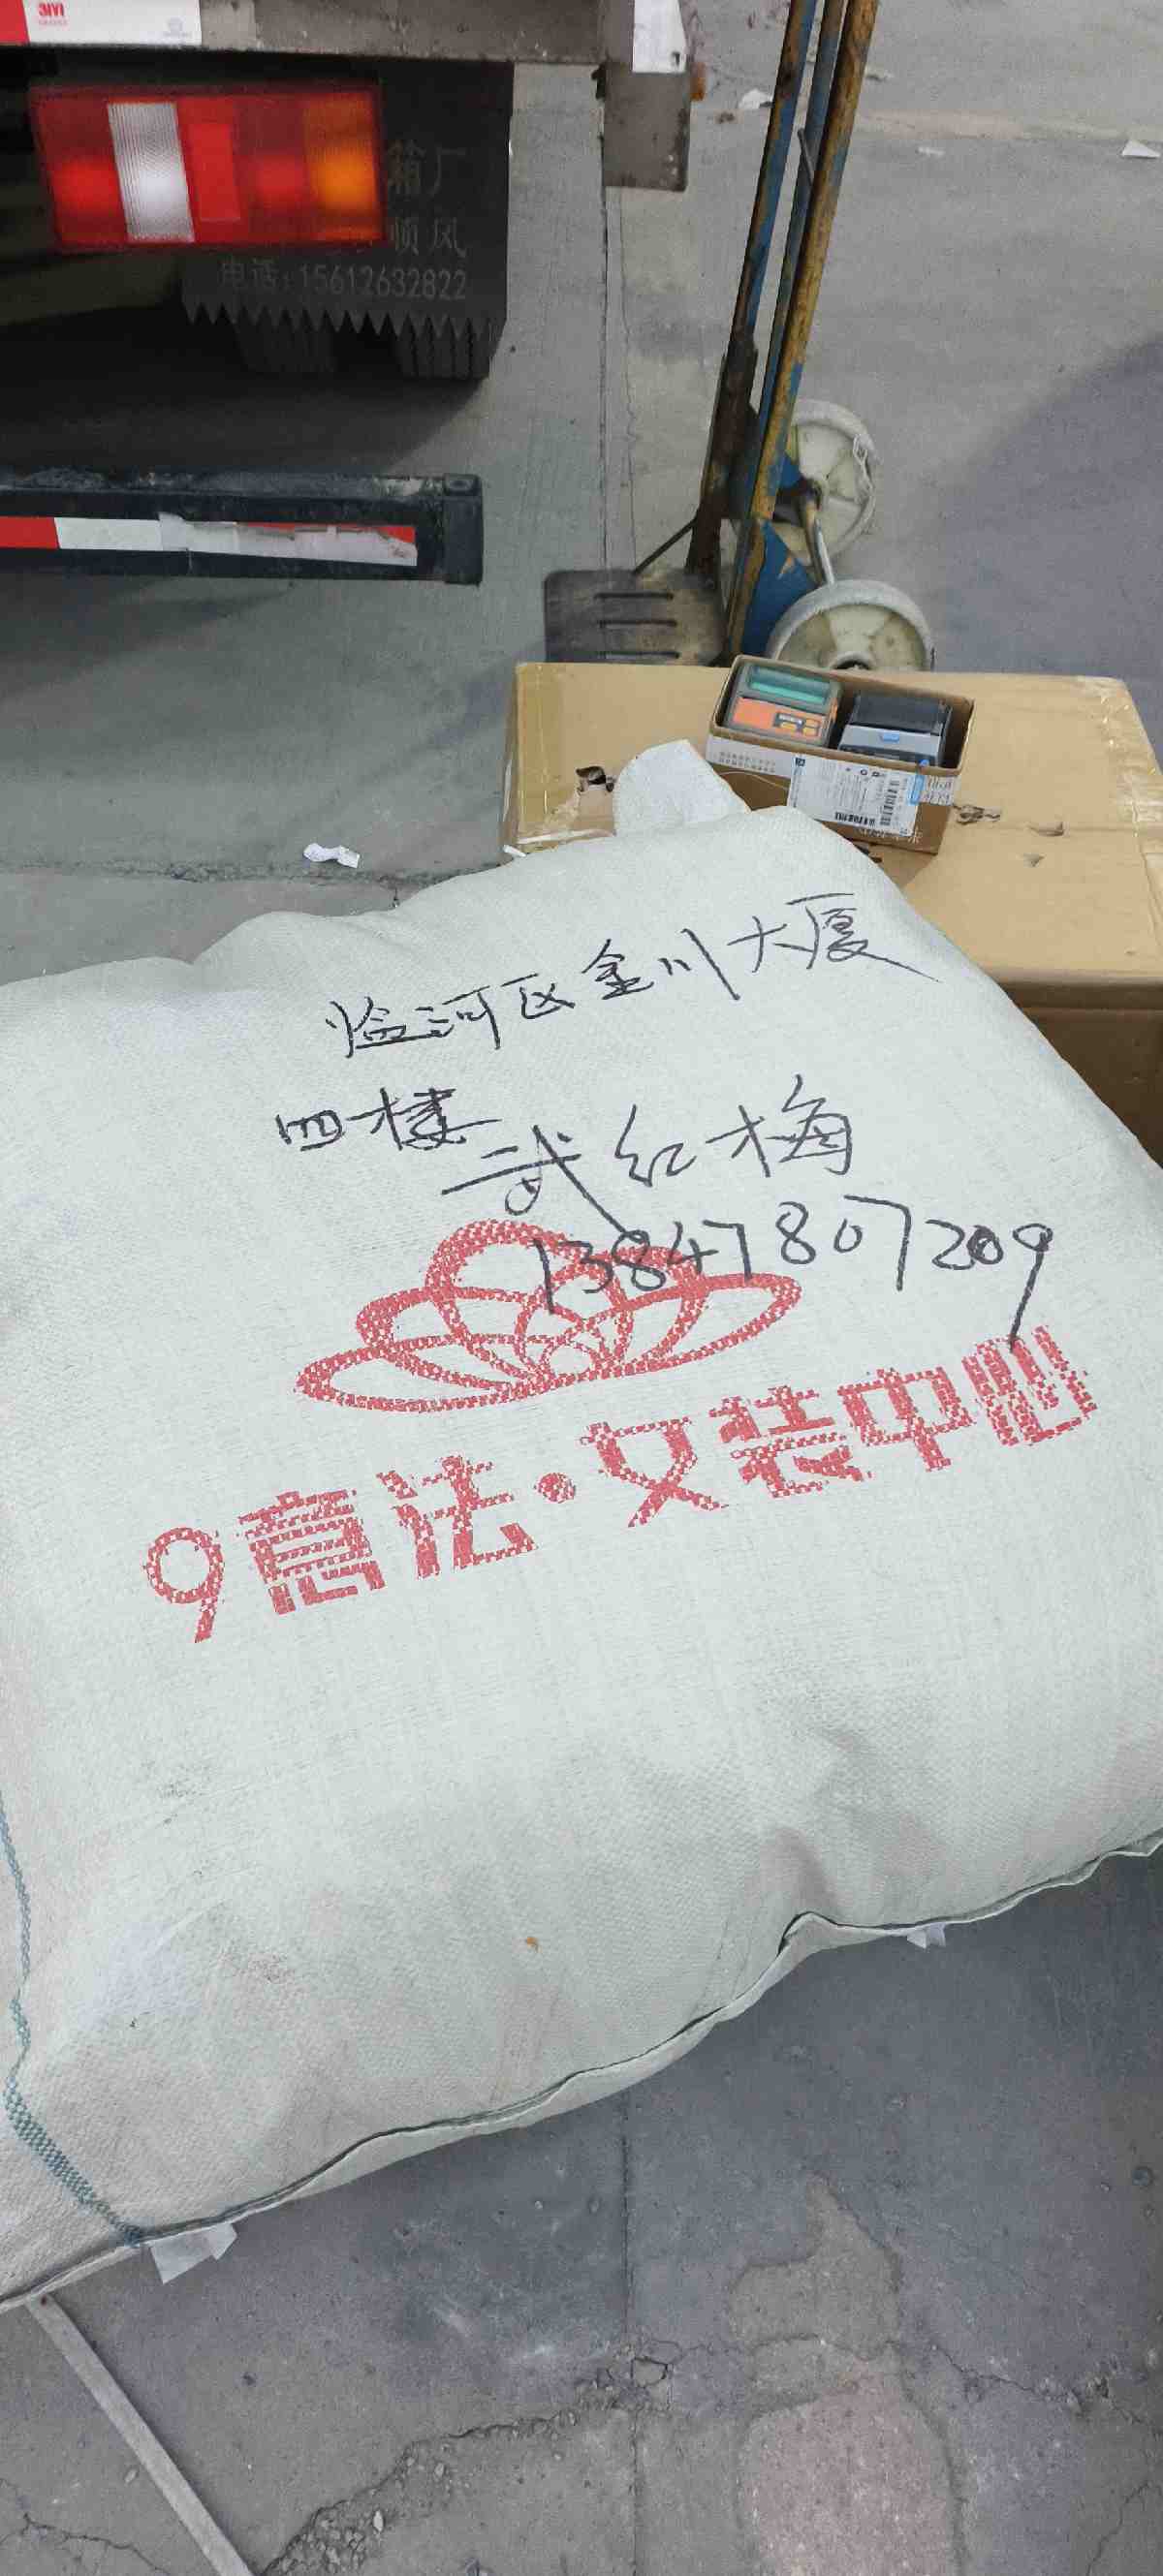 3M
箱厂
顺风
电话:15612632822
临河区金川大厦
四楼
武红梅
13847807209
9寓法·女装中心